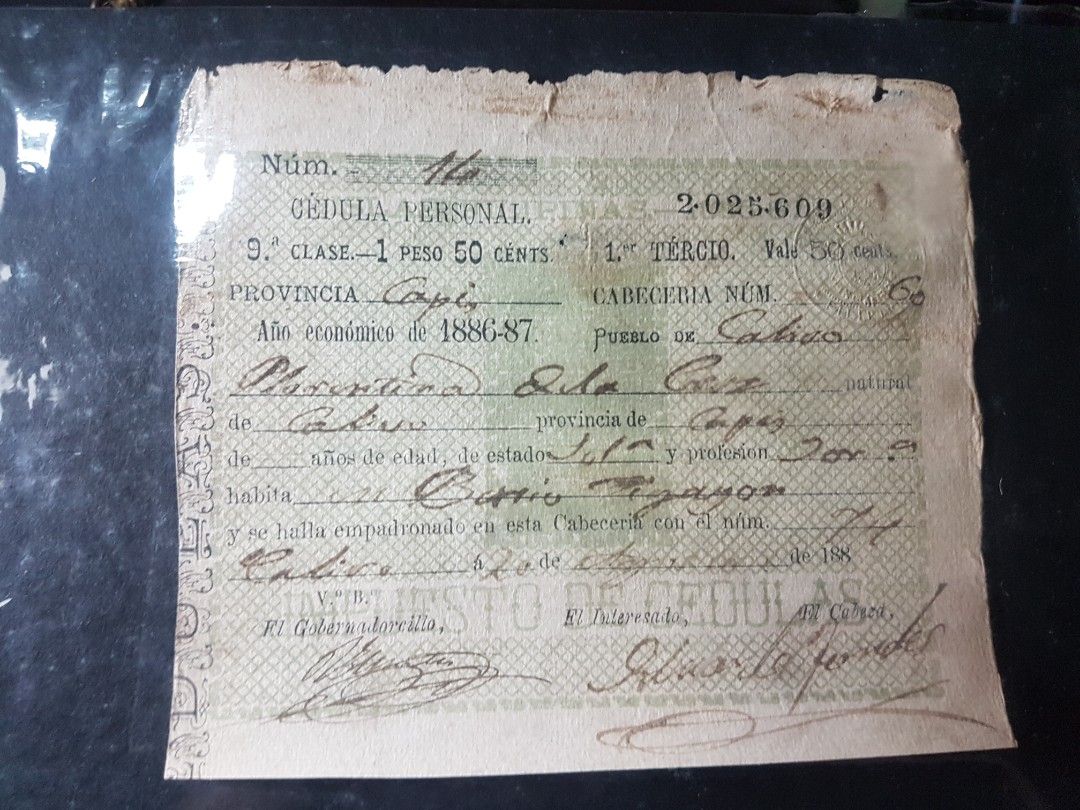 Núm. 16
CÉDULA PERSONAL. FILIPINAS 2.025.609
9.ª CLASE.—1 PESO 50 CÉNTS. 1.er TÉRCIO. Vale 50 cents.
PROVINCIA Capiz CABECERIA NÚM. 60
Año económico de 1886-87. PUEBLO DE Calivo
Florentina de la Cruz natural
de Calivo provincia de Capiz
de años de edad, de estado Solt.ª y profesión
habita en Barrio Tigayon
y se halla empadronado en esta Cabecería con el núm. 74
Calivo á 20 de de 188
V.º B.º
El Gobernadorcillo, El Interesado, El Cabeza,
IMPUESTO DE CEDULAS